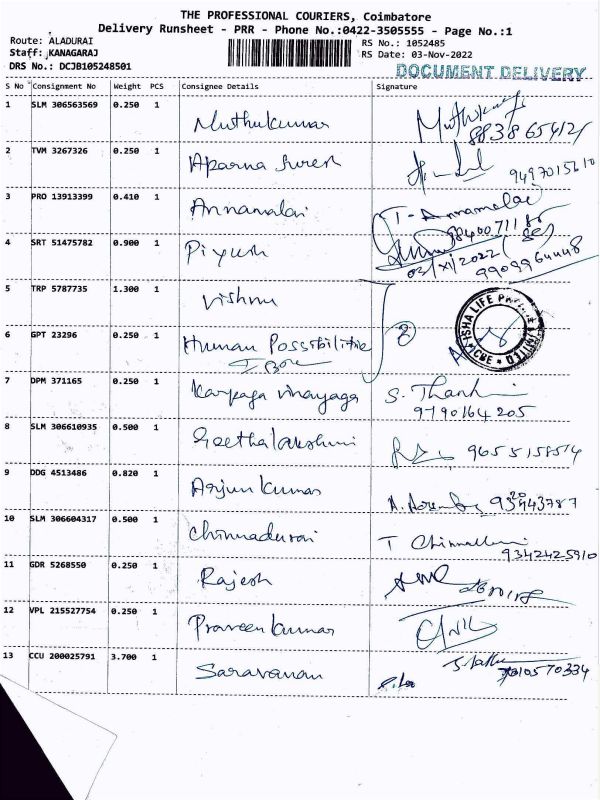 THE PROFESSIONAL COURIERS, Coimbatore
Delivery Runsheet - PRR - Phone No.:0422-3505555 - Page No.:1
Route: ALADURAI
RS No.: 1052485
Staff: KANAGARAJ
RS Date: 03-Nov-2022
DRS No.: DCJB105248501
DOCUMENT DELIVERY
S No Consignment No Weight PCS Consignee Details Signature
1 SLM 306563569 0.250 1 Muthukumar
8838654121
2 TVM 3267326 0.250 1 Aparna Suresh
9497015610
3 PRO 13913399 0.410 1 Annamalai T- Annamalai
9840071186
4 SRT 51475782 0.900 1 Piyush
03/XI/2022
9909964448
5 TRP 5787735 1.300 1 Vishnu
ISHA LIFE
CBE
6 GPT 23296 0.250 1 Human Possibilitie 2
7 DPM 371165 0.250 1 Karpaga vinayaga S.
9790164205
8 SLM 306610935 0.500 1 Geethalakshmi 9655158514
9 DDG 4513486 0.820 1 Arjun kumar
10 SLM 306604317 0.500 1 Chinnadurai T
9342425910
11 GDR 5268550 0.250 1 Rajesh
12 VPL 215527754 0.250 1 Praveen kumar
13 CCU 200025791 3.700 1 Saravanan